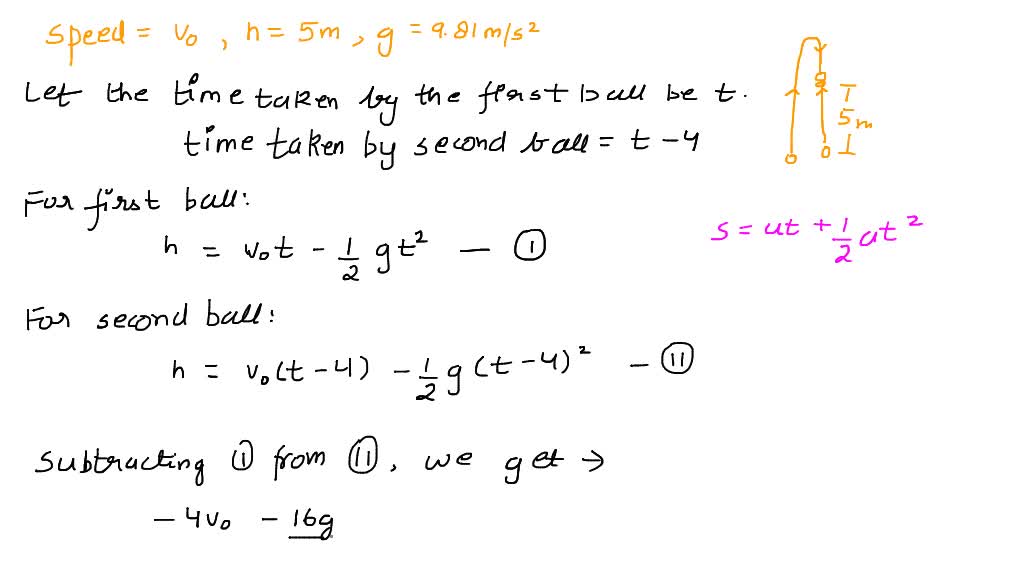 speed = v₀ , h = 5m , g = 9.81 m/s²
Let the time taken by the first ball be t.
time taken by second ball = t - 4
T
5m
⊥
For first ball:
h = v₀t - 1/2 gt² — Ⓘ
s = ut + 1/2 at²
For second ball:
h = v₀(t - 4) - 1/2 g(t - 4)² — ⓘⓘ
Subtracting Ⓘ from ⓘⓘ, we get →
- 4v₀ - 16g